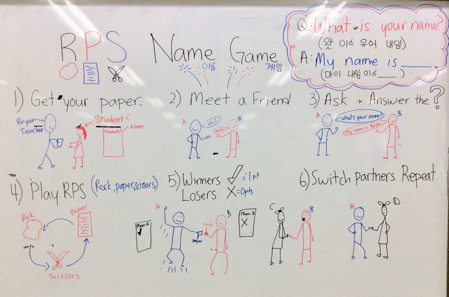 RPS Name Game
이름 게임
Q: What is your name?
(왓 이스 유어 네임)
A: My name is ____
(마이 네임 이스 ___)
1) Get your paper.
Bryan
Teacher
Student
Name
2) Meet a Friend
A B
Hi!
3) Ask + Answer the ?
A B
What's your name?
My name is
4) Play RPS (Rock, paper, scissors)
Rock Paper
Scissors
5) Winners ✓ = 1pt
Losers X = 0pts
A B
X
6) Switch partners. Repeat
C B A D